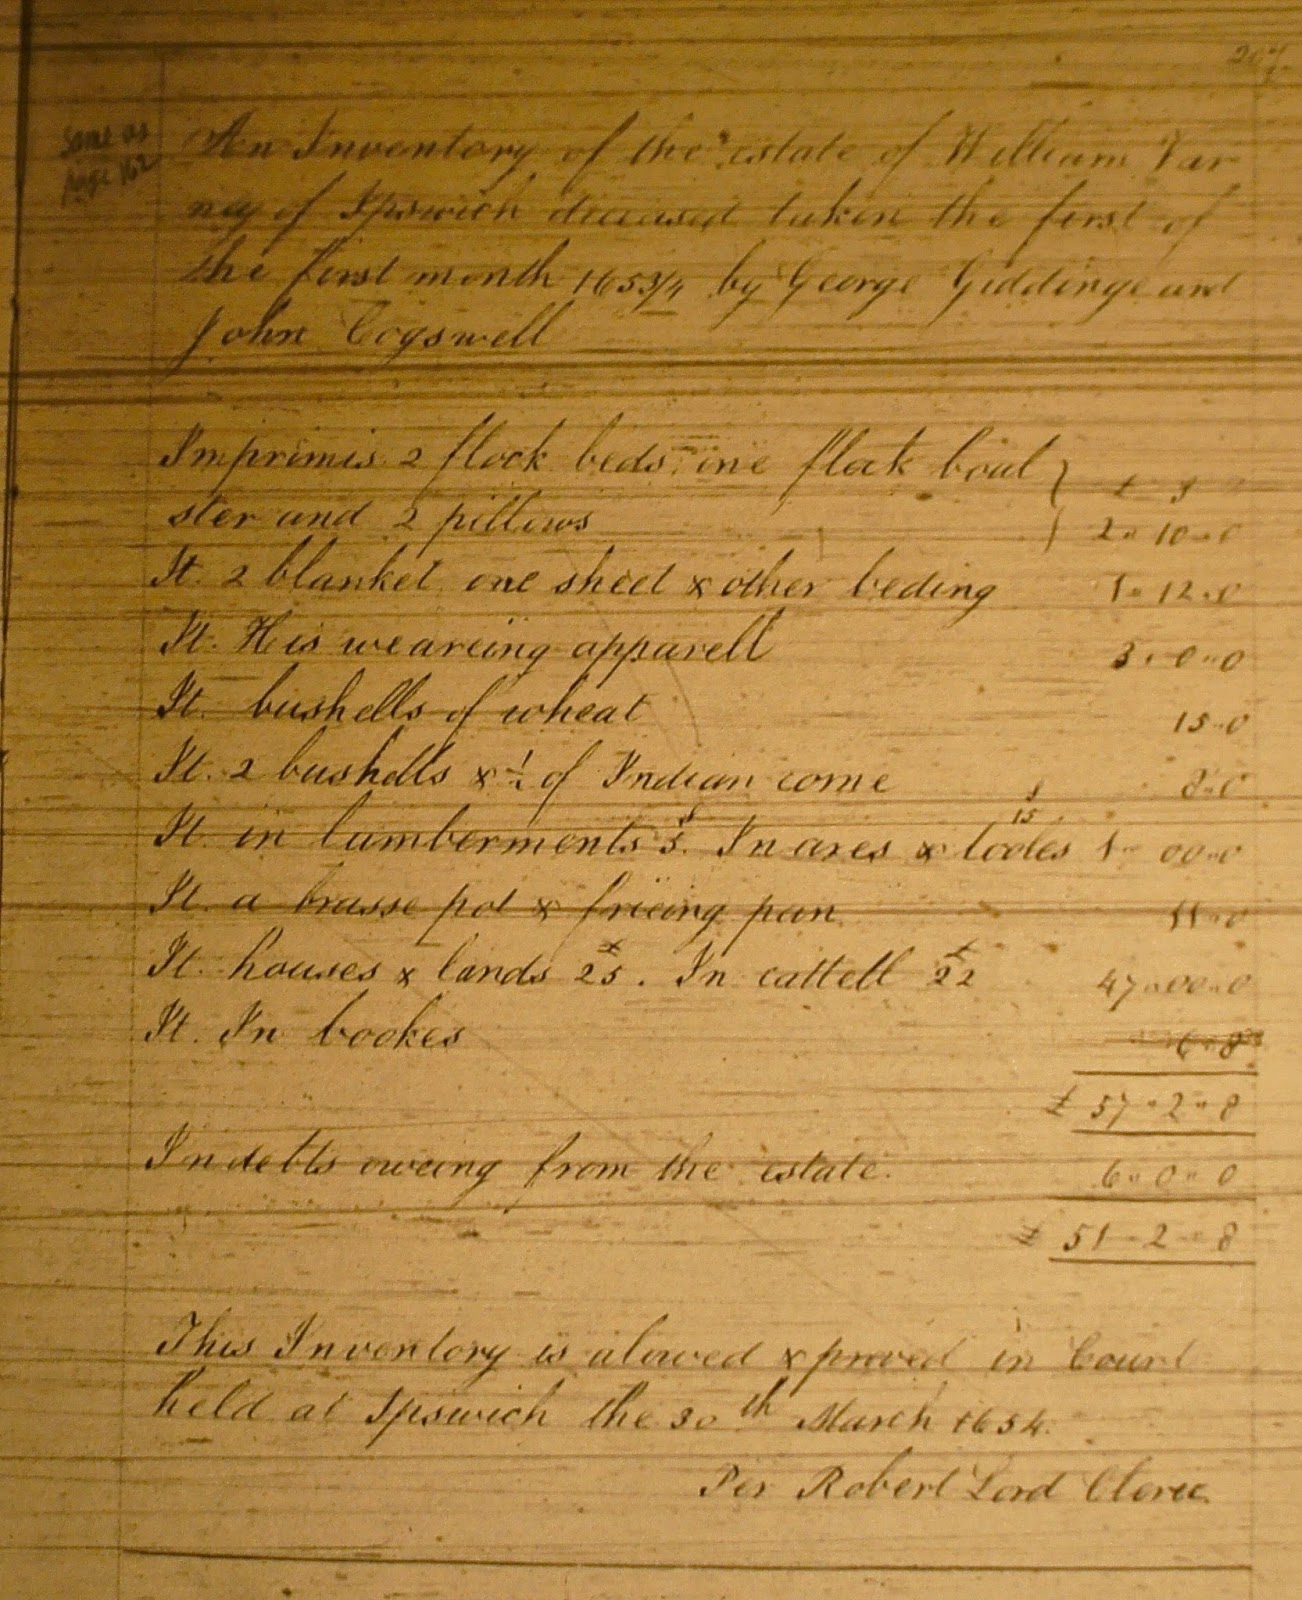 207.
Same as
page 162
An Inventory of the estate of William Var
ney of Ipswich deceased taken the first of
the first month 1653/4 by George Giddinge and
John Cogswell
Imprimis 2 flock beds one flock boul
£ s
ster and 2 pillows 2 " 10 " 0
It. 2 blanket one sheet & other beding 1 " 12 " 0
It. His weareing apparell 3 " 0 " 0
It. bushells of wheat 15 " 0
It. 2 bushells & ½ of Indian corne 8 " 0
s s
It. in lumberments 5. In axes & tooles 15 1 " 00 " 0
It. a brasse pot & frieing pan 11 " 0
£ £
It. houses & lands 25. In cattell 22 47 " 00 " 0
It. In bookes 6 " 8
£ 57 " 2 " 8
In debts oweing from the estate. 6 " 0 " 0
£ 51 " 2 " 8
This Inventory is alowed & proved in Court
held at Ipswich the 30th March 1654.
Per Robert Lord Cleric